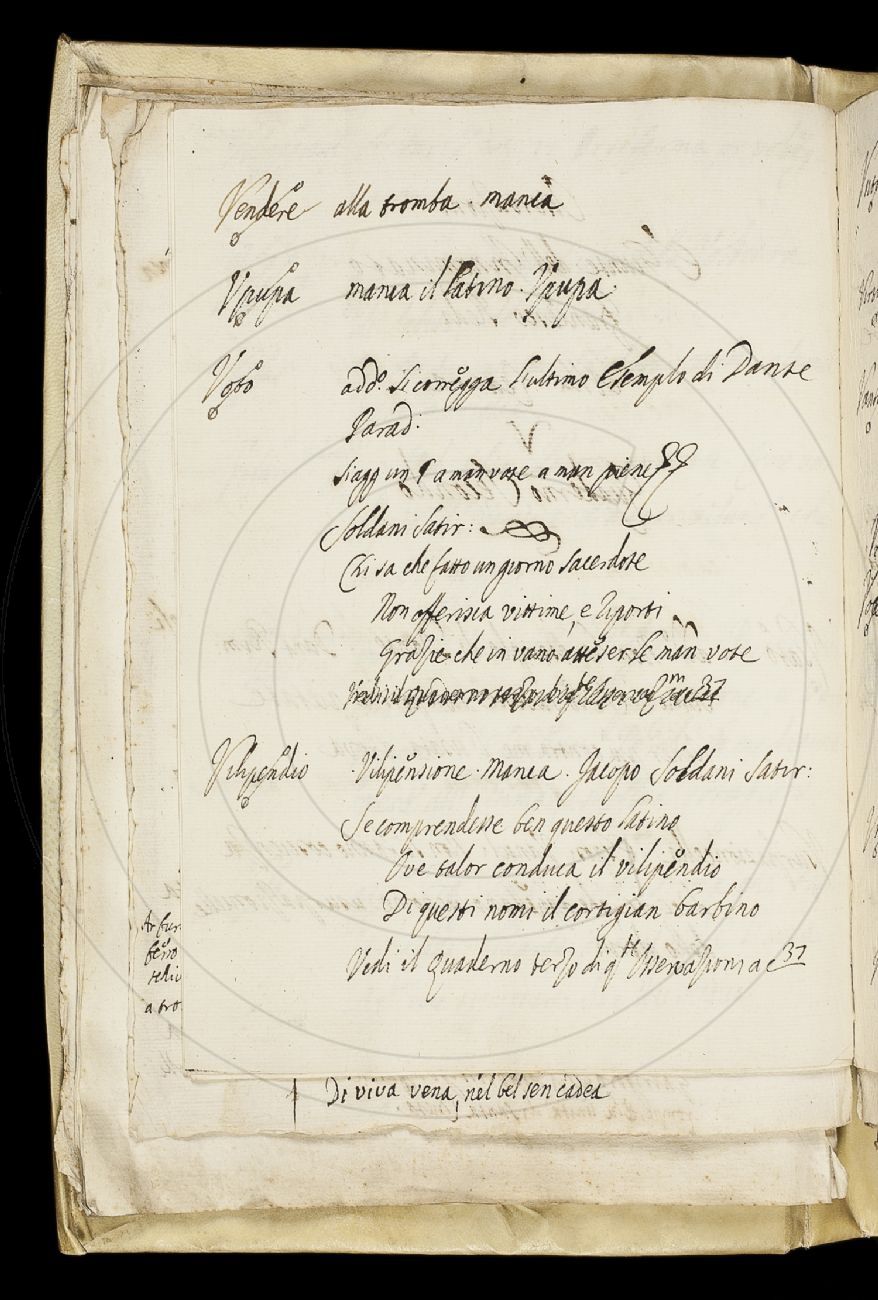 Vendere alla tromba. manca
Upupa manca il latino. Upupa.
Voto add.º si corregga l'ultimo Esempio di Dante
Parad:
si agg un § a man vote a man piene §§
Soldani Satir:
Chi sa che fatto un giorno sacerdote
Non offerisca vittime, e riporti
Grazie che in vano attéser le man vote
Vilipendio Vilipensione. Manca. Jacopo Soldani Satir:
Se comprendesse ben questo latino
Ove talor conduca il vilipendio
Di questi nomi il cortigian barbino
Vedi il quaderno terzo di q.te Osservazioni a c 37
a tro
Di viva vena, nel bel sen cadea